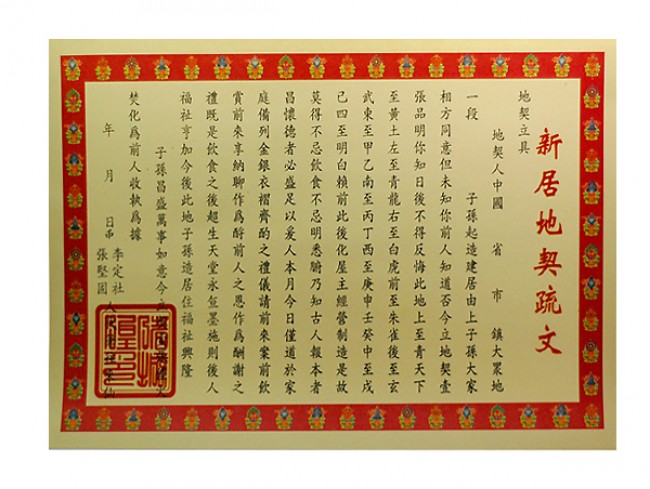 新居地契疏文
地契立具
地契人中國 省 市 鎮大眾地
一段 子孫起造建居由上子孫大家
相方同意但未知你前人知道否今立地契壹
張品明你知日後不得反悔此地上至青天下
至黃土左至青龍右至白虎前至朱雀後至玄
武東至甲乙南至丙丁西至庚申壬癸中至戌
己四至明白賴前此後化屋主經營制造是故
莫得不忌飲食不忌明悉腑乃知古人報本者
昌懷德者必盛足以爰人本月今日僅道於家
庭備列金銀衣褶齊酌之禮儀請前來案前飲
賞前來享納聊作為酧前人之恩作為酬謝之
禮既是飲食之後超生天堂永亟墨施則後人
福祉亨加今後此地子孫造居住福祉興隆
子孫昌盛萬事如意今立
焚化為前人收執為據
年 月 日
李定社
張堅固
人 仙